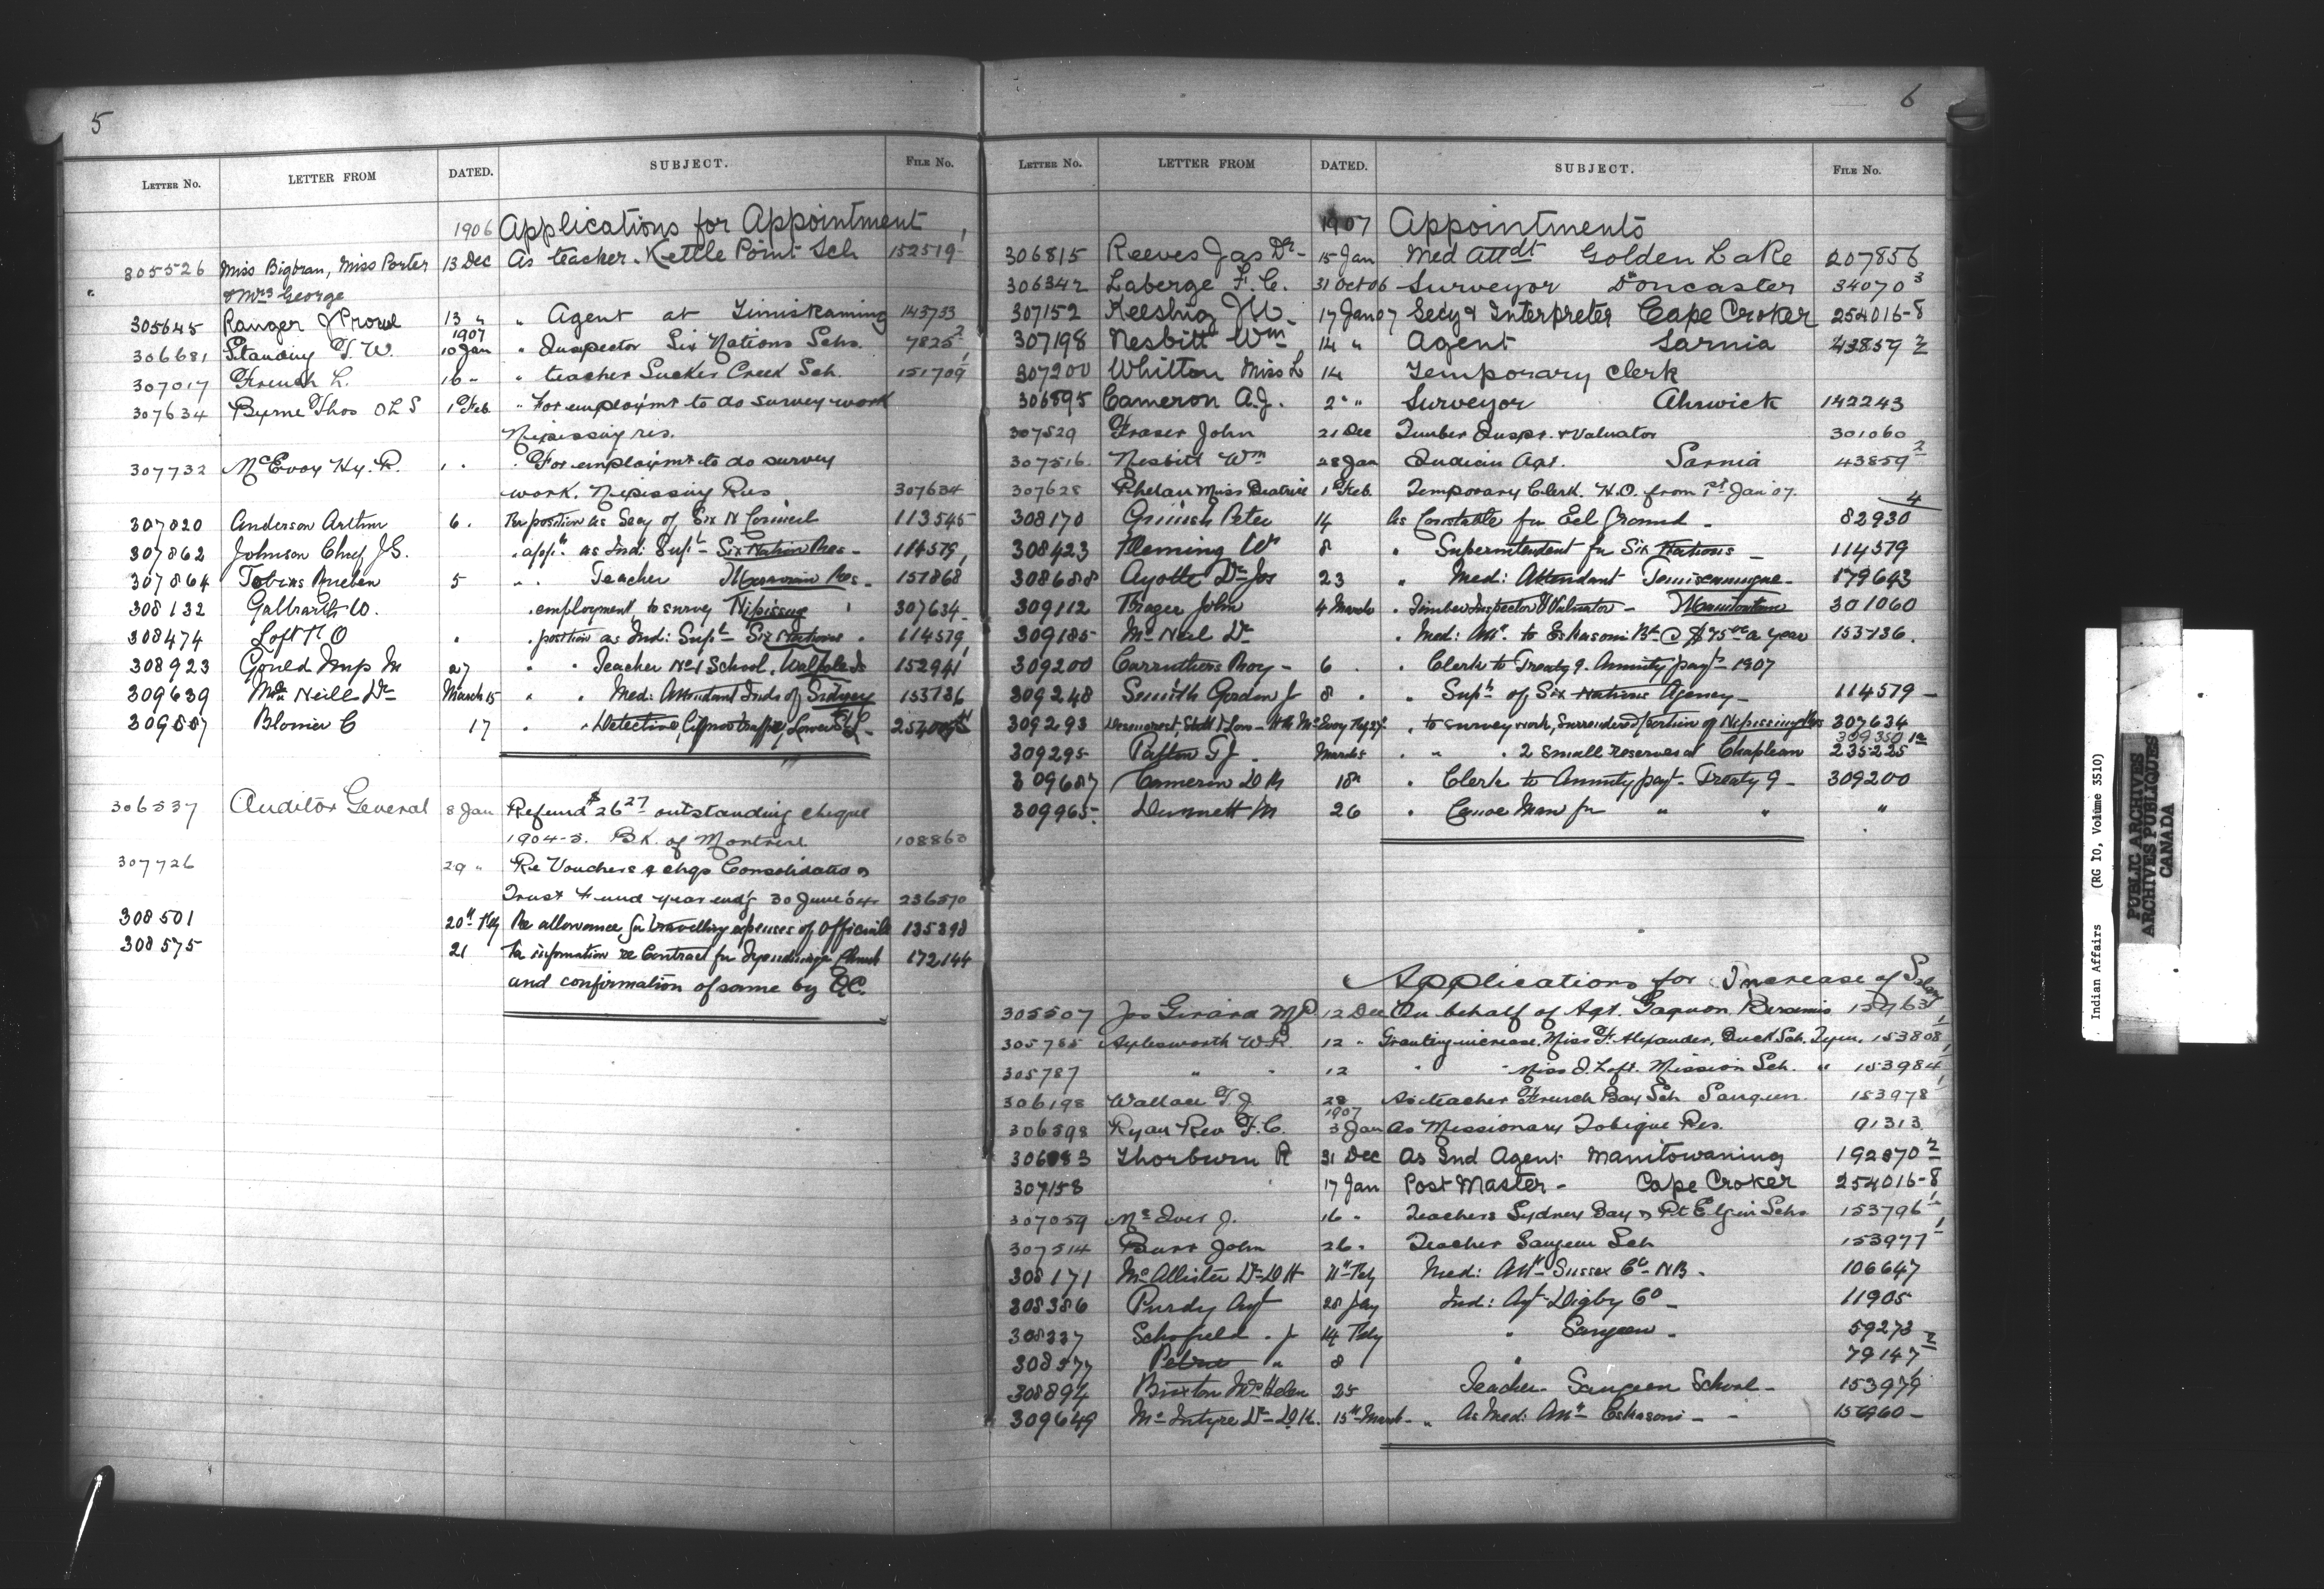 5
LETTER NO. LETTER FROM DATED. SUBJECT. FILE NO.
1906 Applications for Appointment
305526 Miss Bigbran, Miss Porter 13 Dec As teacher. Kettle Point Sch 152519-1
" & Mrs George
305645 Ranger 13 " " Agent at Timiskaming 143753
1907
306681 Standing T. W. 10 Jan " Inspector Six Nations Schs. 7825 2
307017 French L. 16 " " teacher Sucker Creek Sch. 151709 1
307634 Byrne Thos OLS 1 Feb " For employmt to do survey work
Nipissing res.
307732 McEvoy Hy. R. " For employmt to do survey
work. Nipissing Res 307634
307820 Anderson Arthur 6. For position as Secy of Six N Council 113545
307862 Johnson Chief J.G. " appt. as Ind: Supt - Six Nation Res - 114579
307864 Tobias 5 " " Teacher Moravian Res - 151868 1
308132 Galbraith W. " employment to survey Nipissing " 307634
308474 Loft " " position as Ind: Supt - Six Nations " 114579
308923 Gould M 27 " " Teacher No 1 School, Walpole Is 152941 1
309639 McNeill Dr March 15 " " Med: Attendant Inds of Sidney 153736
309557 Blomer C 17 " " Detective, Liquor traffic, Lower St L -
306537 Auditor General 8 Jan Refund $26 27 outstanding cheque
1904-5. BK. of Montreal 108863
307726 29 " Re Vouchers & chqs Consolidation
Trust Fund year endg 30 June 04 236570
308501 20th Feby Re allowance for travelling expenses of Officials 135398
308575 21 For information re Contract for Tyendinaga Church 172144
and confirmation of same by O.C.
6
LETTER NO. LETTER FROM DATED. SUBJECT. FILE NO.
1907 Appointments
306815 Reeves Jas Dr - 15 Jan Med Attdt Golden Lake 207856
306342 Laberge F. C. 31 Oct 06 Surveyor Doncaster 34070 3
307152 Keeshig 17 Jan 07 Secy & Interpreter Cape Croker 254016-8
307198 Nesbitt Wm 14 " Agent Sarnia 43859 2
307200 Whitton Miss L 14 Temporary Clerk
306895 Cameron A.J. 2 " " Surveyor Alnwick 142243
307529 Fraser John 21 Dec Timber Inspr. & Valuator 301060
307516 Nesbitt Wm 28 Jan Indian Agt. Sarnia 43859 2
307628 Phelan Miss Beatrice 1 Feb. Temporary Clerk. H.O. from 1st Jan 07.
308170 Grinish Peter 14 As Constable for Eel Ground - 82930 4
308423 Fleming Wm 8 " Superintendent for Six Nations - 114579
308688 Ayotte Dr Jos 23 " Med: Attendant Temiscamingue - 179643
309112 Frazer John 4 March " Timber Inspector & Valuator - 301060
309185 McNeil Dr " Med: Att. to Eskasoni Bd @ $75.00 a year 153736.
309200 Carruthers Roy - 6 " " Clerk to Treaty 9. Annuity payt - 1907
309248 Smith Gordon J 8 " " Supt of Six Nations Agency - 114579 -
309293 " to survey work, Surrendered portion of Nipissing Res 307634
309350 1a
309295 Patton T J. March 5 " " " 2 small Reserves at Chapleau 235225
309687 Cameron D M 18 " " Clerk to Annuity payt - Treaty 9 - 309200
309965 Dunnett M 26 " Canoe Man for " " "
Applications for Increase of Salary
305507 Jos Girard M.P 12 Dec On behalf of Agt. Gagnon Bersimis
305785 Aylesworth W.R. 12 " Granting increase. Miss F. Alexander. Buck Sch. Tyen. 153808 1
305787 " " 12 " " Miss J. Loft. Mission Sch. " 153984 1
306198 Wallace T. J. 28 As teacher French Bay Sch Saugeen 153978 1
1907
306598 Ryan Rev F. C. 3 Jan As Missionary Tobique Res. 91313
306883 Thorburn R 31 Dec As Ind Agent Manitowaning 192870 2
307158 17 Jan Post Master - Cape Croker 254016-8
307059 McIver J. 16 " Teachers Sydney Bay & Pt Elgin Schs 153796 1
307514 Burr John 26 " Teacher Saugeen Sch 153977 1
308171 McAllister Dr D H 11th Feby Med: Att - Sussex Co - NB. 106647
308386 Purdy Agt 28 Jay Ind: Agt - Digby Co - 11905
308337 Schofield. J 14 Feby " Saugeen - 59273
308577 " 8 " 79147 2
308894 Brixton Mrs Helen 25 Teacher - Saugeen School - 153979
309649 McIntyre Dr D.K. 15th March - " As Med: Att - Eskasoni - -
Indian Affairs (RG 10, Volume 3510)
PUBLIC ARCHIVES
ARCHIVES PUBLIQUES
CANADA